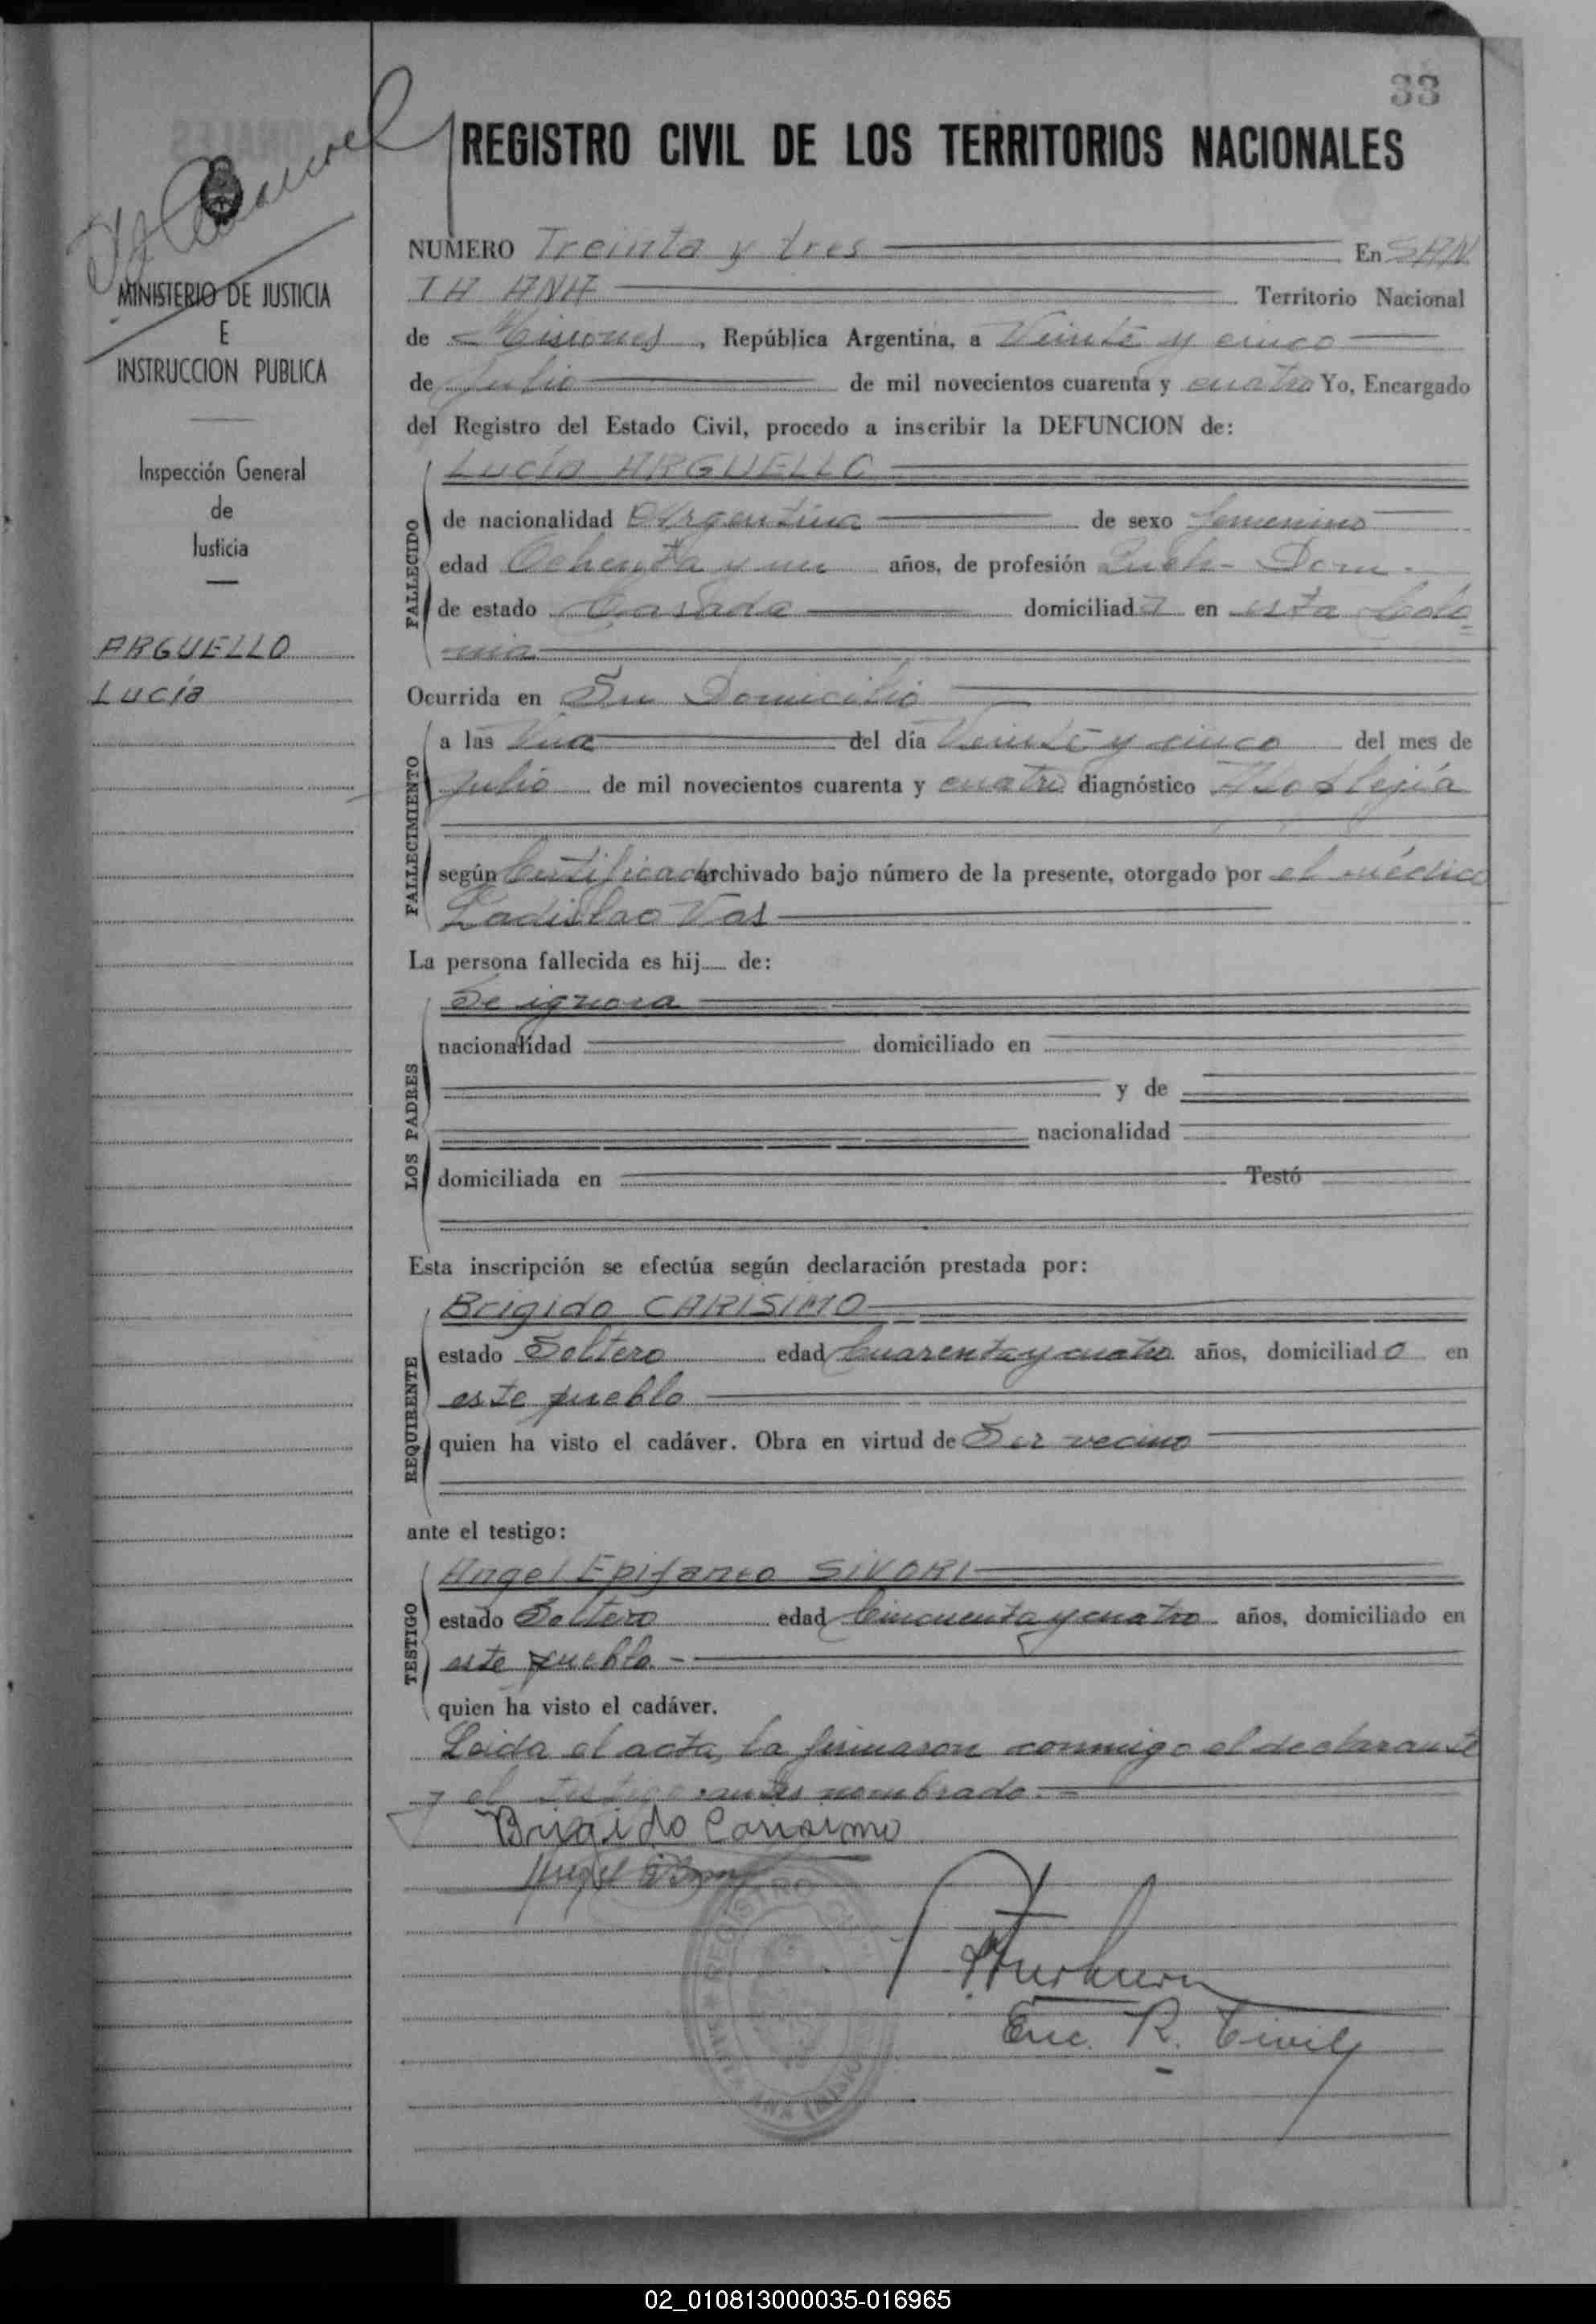 33
REGISTRO CIVIL DE LOS TERRITORIOS NACIONALES
MINISTERIO DE JUSTICIA
E
INSTRUCCION PUBLICA
Inspección General
de
Justicia
ARGUELLO
Lucía
NUMERO Treinta y tres En SAN
TA ANA Territorio Nacional
de Misiones, República Argentina, a Veinte y cinco
de Julio de mil novecientos cuarenta y cuatro Yo, Encargado
del Registro del Estado Civil, procedo a inscribir la DEFUNCION de:
FALLECIDO
Lucía ARGUELLO
de nacionalidad Argentina de sexo femenino
edad Ochenta y un años, de profesión Dom.
de estado Casada domiciliada en esta Colo
nia
Ocurrida en Su Domicilio
FALLECIMIENTO
a las Una del día Veinte y cinco del mes de
Julio de mil novecientos cuarenta y cuatro diagnóstico
según Certificado archivado bajo número de la presente, otorgado por el médico
Ladislao Vas
La persona fallecida es hij de:
LOS PADRES
Se ignora
nacionalidad domiciliado en
y de
nacionalidad
domiciliada en Testó
Esta inscripción se efectúa según declaración prestada por:
REQUIRENTE
Brigido CARISIMO
estado Soltero edad Cuarenta y cuatro años, domiciliado en
este pueblo
quien ha visto el cadáver. Obra en virtud de Ser vecino
ante el testigo:
TESTIGO
Angel Epifaneo SIVORI
estado Soltero edad Cincuenta y cuatro años, domiciliado en
este pueblo.-
quien ha visto el cadáver.
Leida el acta, la firmaron conmigo el declarante
y el testigo antes nombrado.=
Brigido Carisimo
Enc. R. Civil
02_010813000035-016965